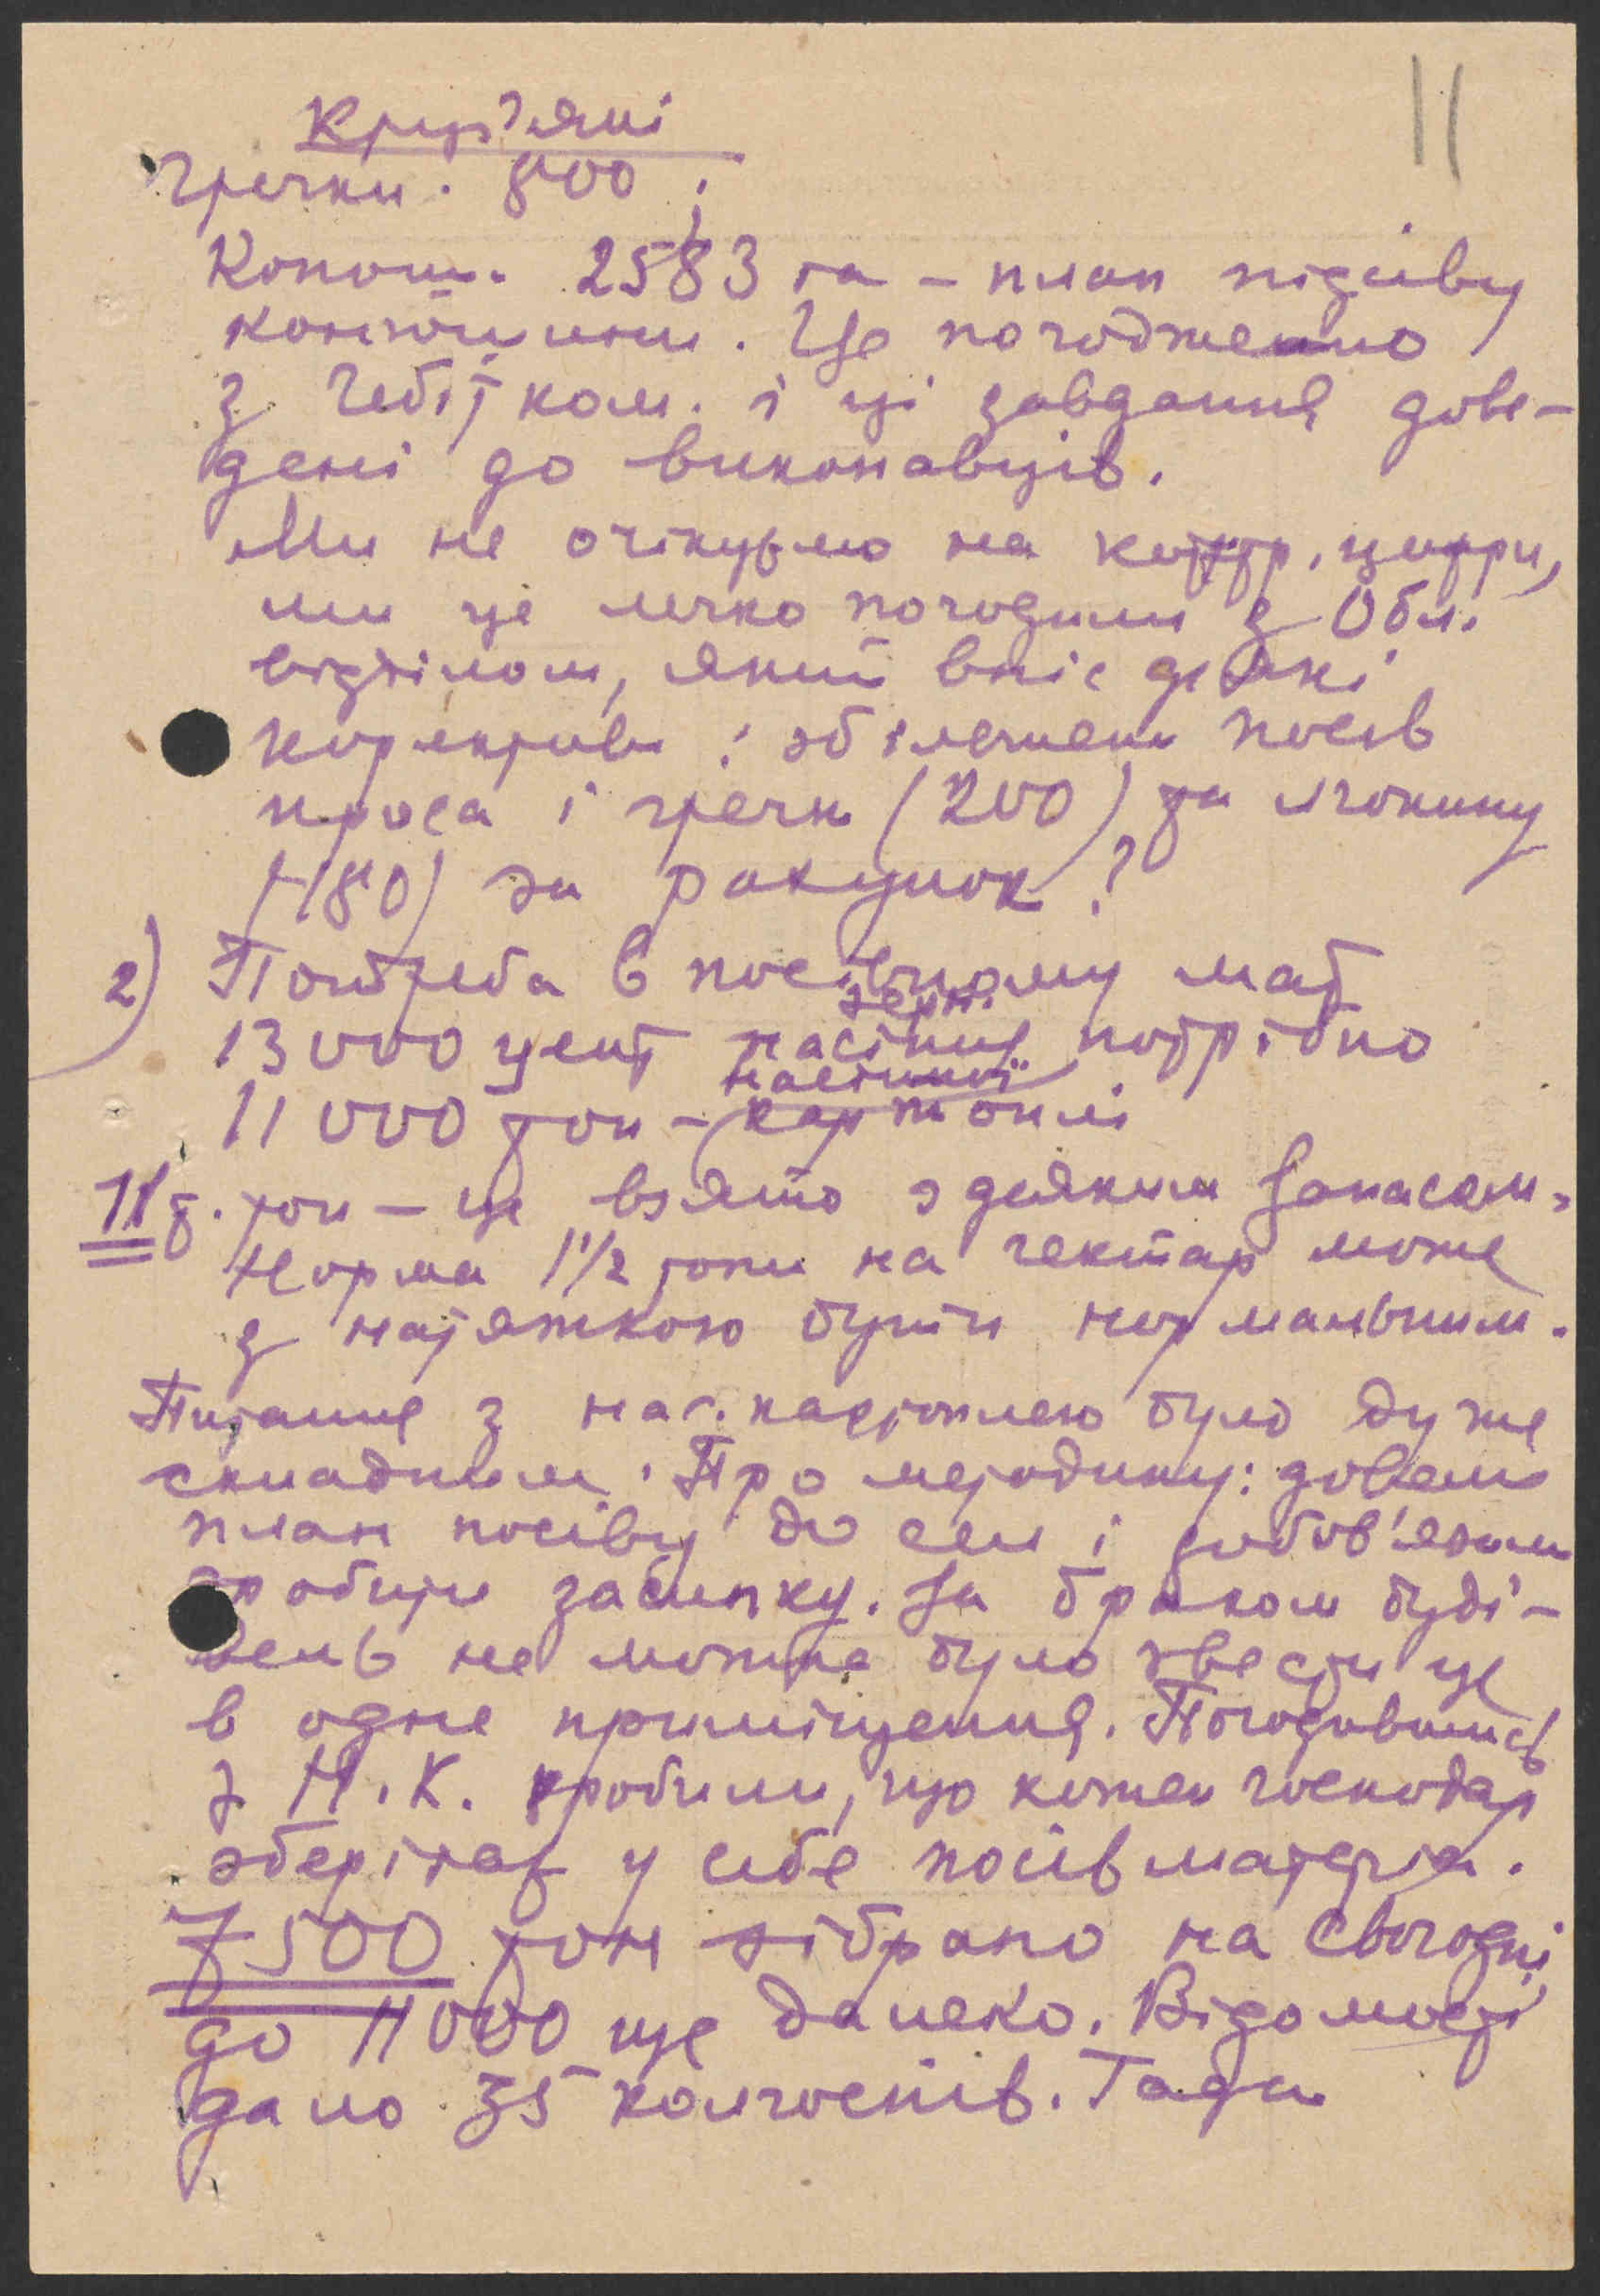 11
Круп'яні
Гречки. 800;
Конюш. 2583 га – план підсіву
конюшини. Це погодженно
з Гебітком. і ці завдання дове-
дені до виконавців.
Ми не очікуємо на контр. цифри,
ми це легко погодили з Обл.
відділом, який вніс деякі
корективи: збільшен посів
проса і гречк (200) та
(-180) за рахунок?
2) Потреба в посівному мат
зерн.
13000 цент насіння потрібно
насінної
11000 тон – картоплі
11 т. тон – це взято з деяким запасом.
Норма 1 1/2 тони на гектар може
з натяжкою бути нормальним.
Питання з нас. картоплею було дуже
складним. Про методику: довели
план посіву до сел і зобов'язали
зробити засипку. За браком буді-
вень не можна було звести це
в одне приміщення. Погодившись
з Н.К. зробили, що кожен господар
зберігає у себе посівматеріял.
7500 тон зібрано на сьогодні
до 11000 ще далеко. Відомості
дало 35 колгоспів.